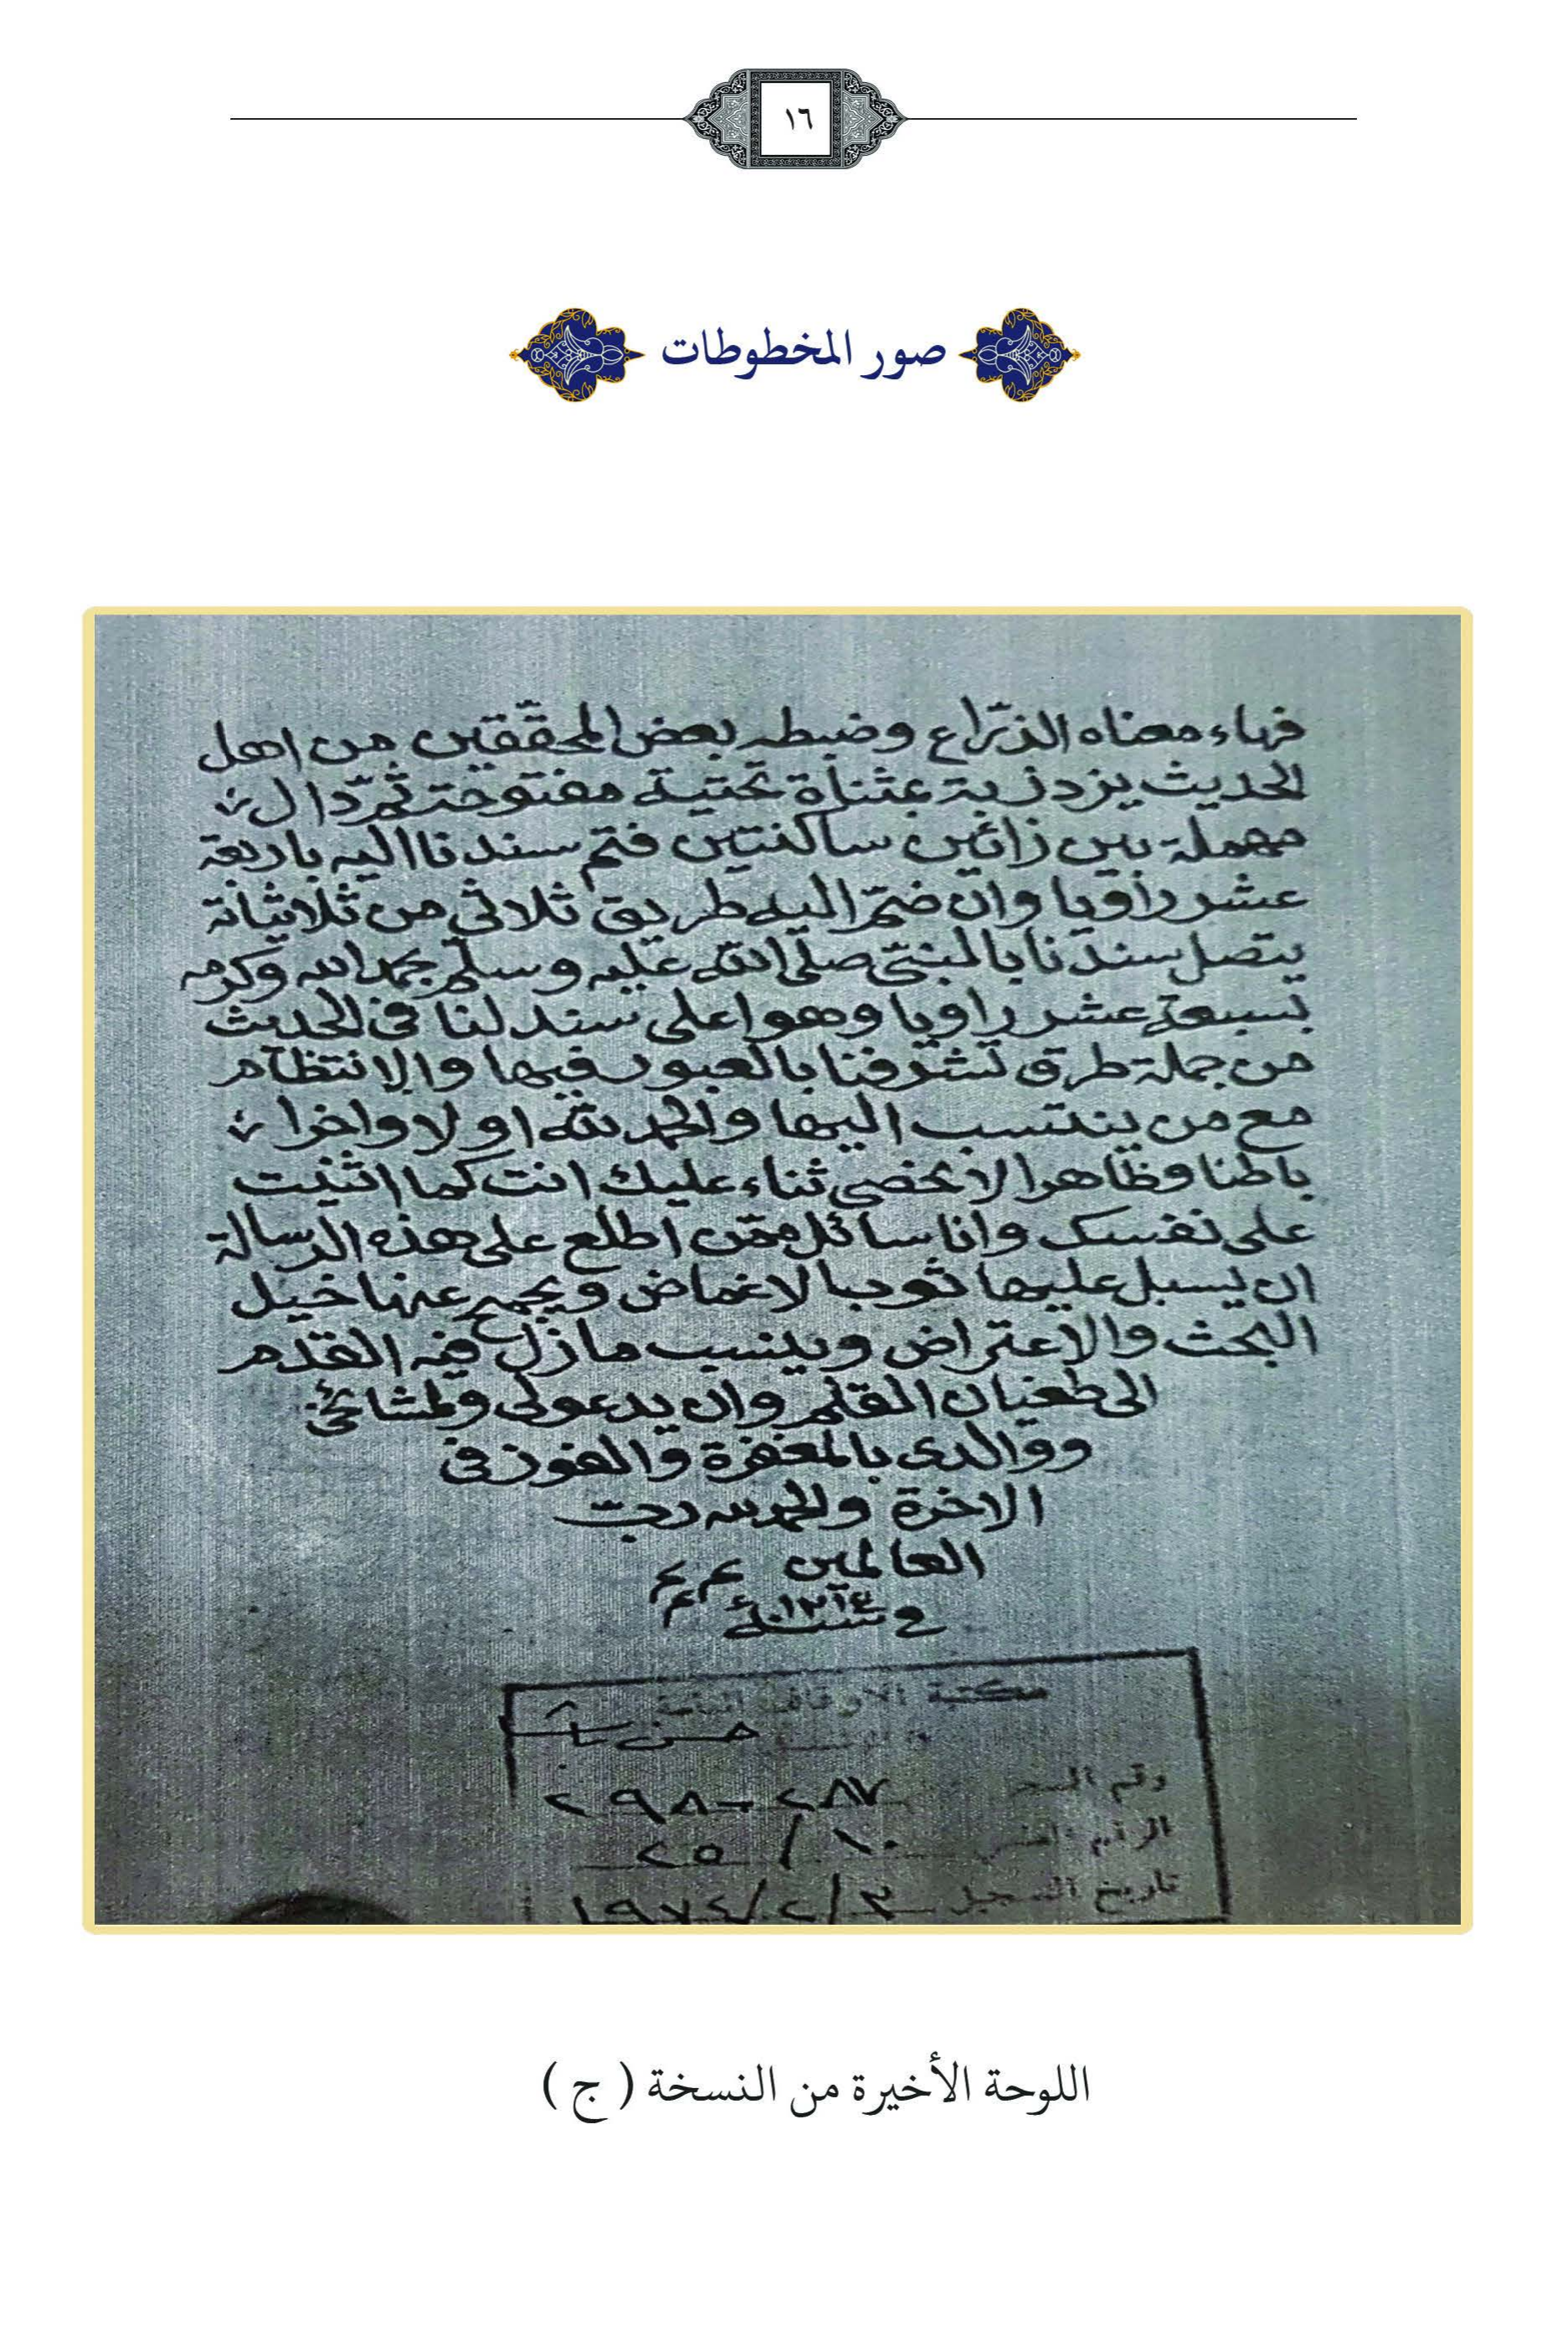 ١٦
صور المخطوطات
فهاء معناه الذرّاع وضبطه بعض المحقّقين من اهل
الحديث يزدزبة بمثناة تحتية مفتوحة ثم دال
مهملة بين زائين ساكنتين فتم سندنا اليه باربعة
عشر راويا وان ضمّ اليه طريق ثلاثي من ثلاثياته
يتصل سندنا بالنبيّ صلى الله عليه وسلم بحمد الله وكرمه
بسبعة عشر راويا وهو اعلى سند لنا في الحديث
من جملة طرق تشرفنا بالعبور فيها والانتظام
مع من ينتسب اليها والحمد لله اولا واخرا
باطنا وظاهرا لا نحصى ثناء عليك انت كما اثنيت
على نفسك وانا سائل ممّن اطلع على هذه الرسالة
ان يسبل عليها ثوب الاغماض ويجمح عنها خيل
البحث والاعتراض وينسب ما زل فيه القدم
الى طغيان القلم وان يدعو لى ولمشائخي
ووالدى بالمغفرة والفوز في
الاخرة والحمد لله ربّ
العالمين
في سنة ١٢١٤
مكتبة الاوقاف العامة
حسن باشا
رقم ٢٨٧ - ٢٩٨
الرقم ١٠ / ٢٥
تاريخ التسجيل ٣/٢/١٩٧٤
اللوحة الأخيرة من النسخة ( ج )